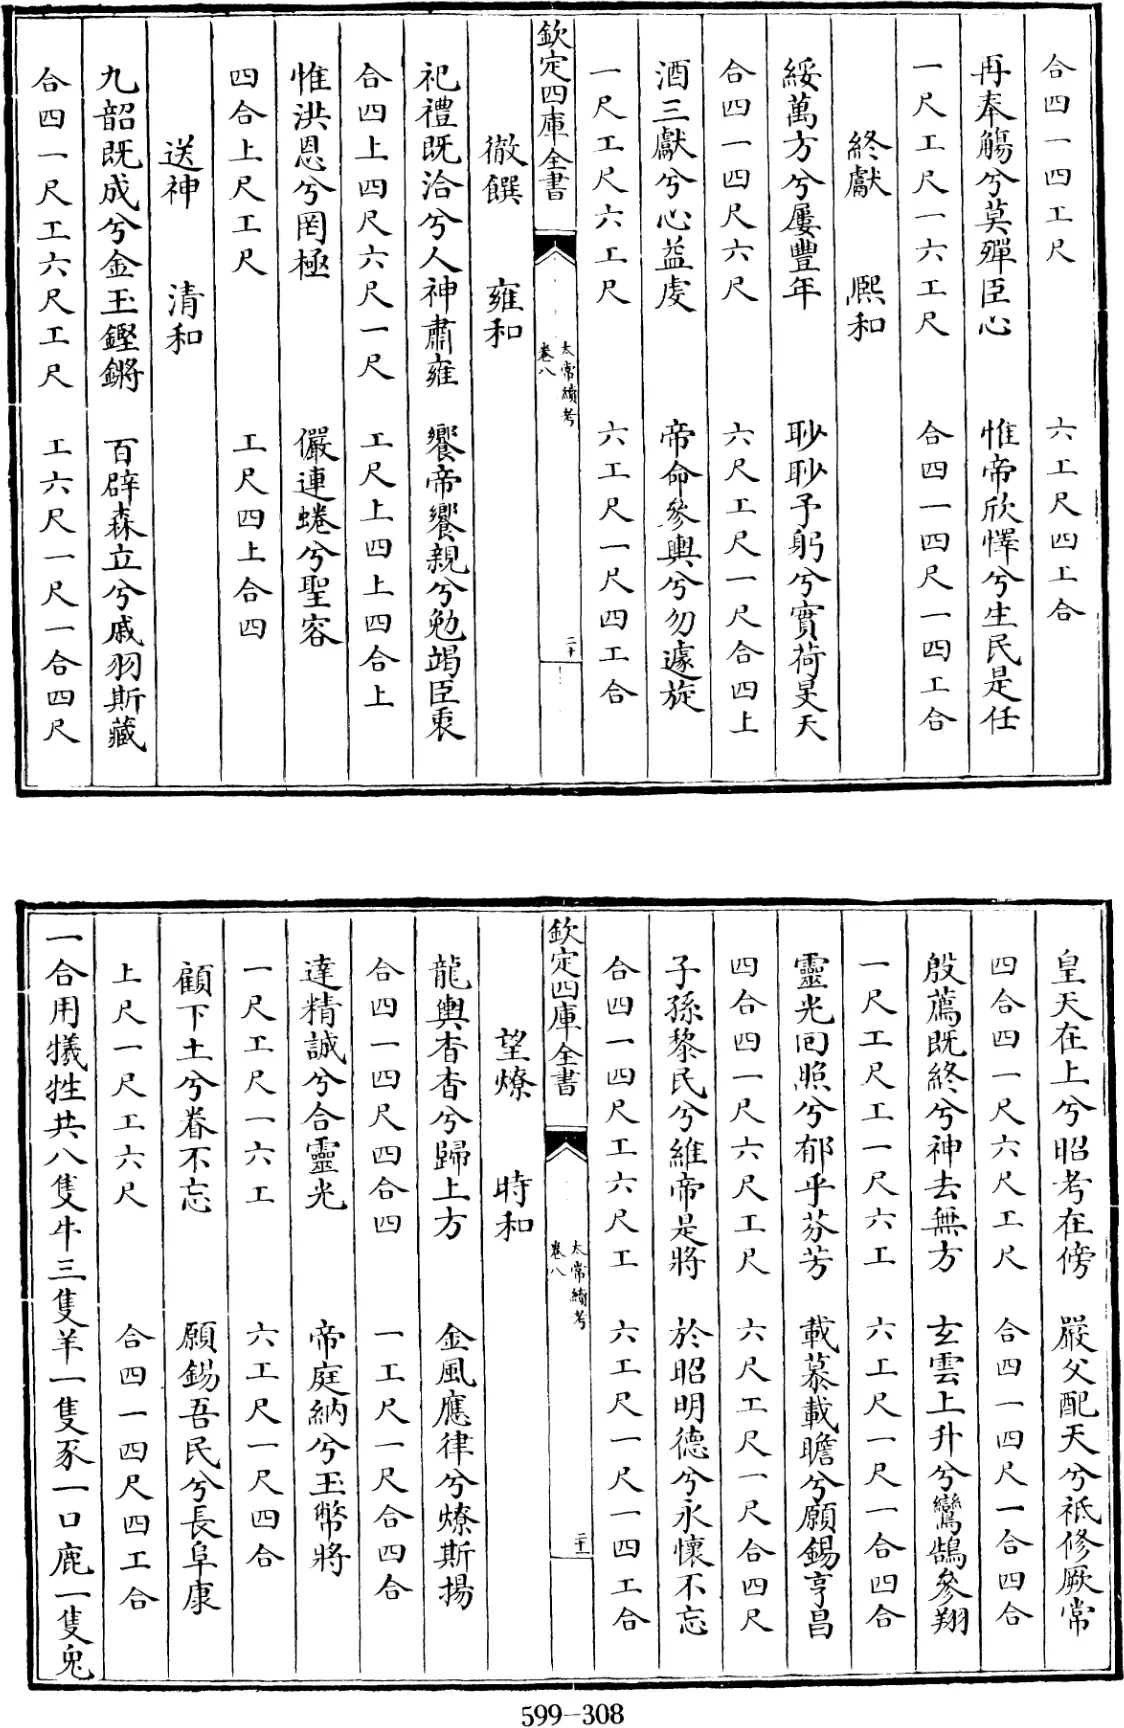 合四一四工尺　六工尺四工合
再奉觴兮莫殫臣心　惟帝欣懌兮生民是任
一尺工尺一六工尺　合四一四尺一四工合
終獻　熈和
綏萬方兮屢豐年　耿耿予躬兮實荷旻天
合四一四尺六尺　六尺工尺一尺合四上
酒三獻兮心益虔　帝命參輿兮勿遽旋
一尺工尺六工尺　六工尺一尺四工合
欽定四庫全書　太常續考　卷八　二十
徹饌　雍和
祀禮既洽兮人神肅雍　饗帝饗親兮勉竭臣衷
合四上四尺六尺一尺　工尺上四上四合上
惟洪恩兮罔極　儼連蜷兮聖容
四合上尺工尺　工尺四上合四
送神　清和
九韶既成兮金玉鏗鏘　百辟森立兮戚羽斯藏
合四一尺工六尺工尺　工六尺一尺一合四尺
皇天在上兮昭考在傍　嚴父配天兮祗修厥常
四合四一尺六尺工尺　合四一四尺一合四合
殷薦既終兮神去無方　玄雲上升兮鸞鵠參翔
一尺工尺工一尺六工　六工尺一尺一合四合
靈光回照兮郁乎芬芳　載慕載瞻兮願錫亨昌
四合四一尺六尺工尺　六尺工尺一尺合四尺
子孫黎民兮維帝是將　於昭明德兮永懷不忘
合四一四尺工六尺工　六工尺一尺一四工合
欽定四庫全書　太常續考　卷八　二十一
望燎　時和
龍輿杳杳兮歸上方　金風應律兮燎斯揚
合四一四尺四合四　一工尺一尺合四合
達精誠兮合靈光　帝庭納兮玉幣將
一尺工尺一六工　六工尺一尺四合
顧下土兮眷不忘　願錫吾民兮長阜康
上尺一尺工六尺　合四一四尺四工合
一合用犧牲共八隻牛三隻羊一隻豕一口鹿一隻兎
599-308